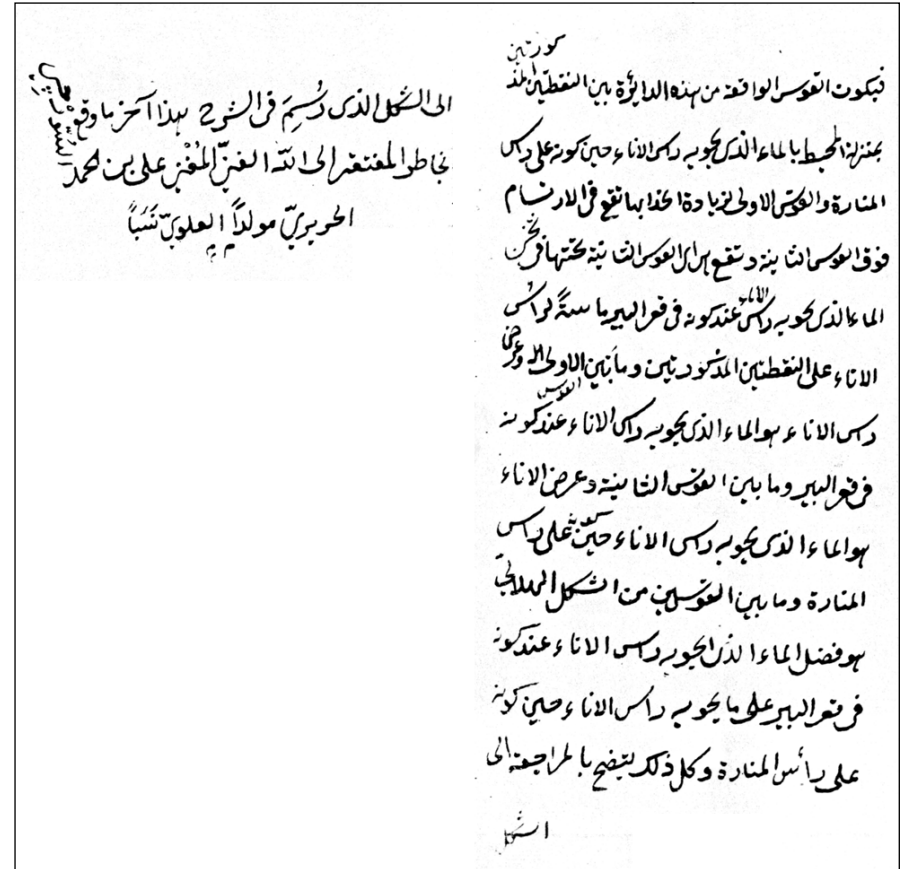 فيكون القوس الواقعة من هذه الدايرة بين النقطتين المذ
كورتين
بمنزلة المحيط بالماء الذى يحويه راس الاناء حين كونه على راس
المنارة والقوس الاولى لزيادة انحدابها تقع فى الارتسام
فوق القوس الثانية وتقع هى اى القوس الثانية تحتها فى ثخن
الماء الذى يحويه راس الاناء عند كونه فى قعر البير ماسة لراس
الاناء على النقطتين المذكورتين وما بين القوس الاولى وعرض
راس الاناء هو الماء الذى يحويه راس الاناء عند كونه
فى قعر البير وما بين القوس الثانية وعرض الاناء
هو الماء الذى يحويه راس الاناء حين كونه على راس
المنارة وما بين القوسين من الشكل الهلالى
هو فضل الماء الذى يحويه راس الاناء عند كونه
فى قعر البير على ما يحويه راس الاناء حين كونه
على رأس المنارة وكل ذلك يتضح بالمراجعة الى
الشكل
الى الشكل الذى رُسِمَ فى الشرح هذا آخر ما وقع
بخاطر المفتقر الى اللّه الغنىّ المُغْنِى على بن محمد
الحويريّ مولداً العلوىّ نَسَباً